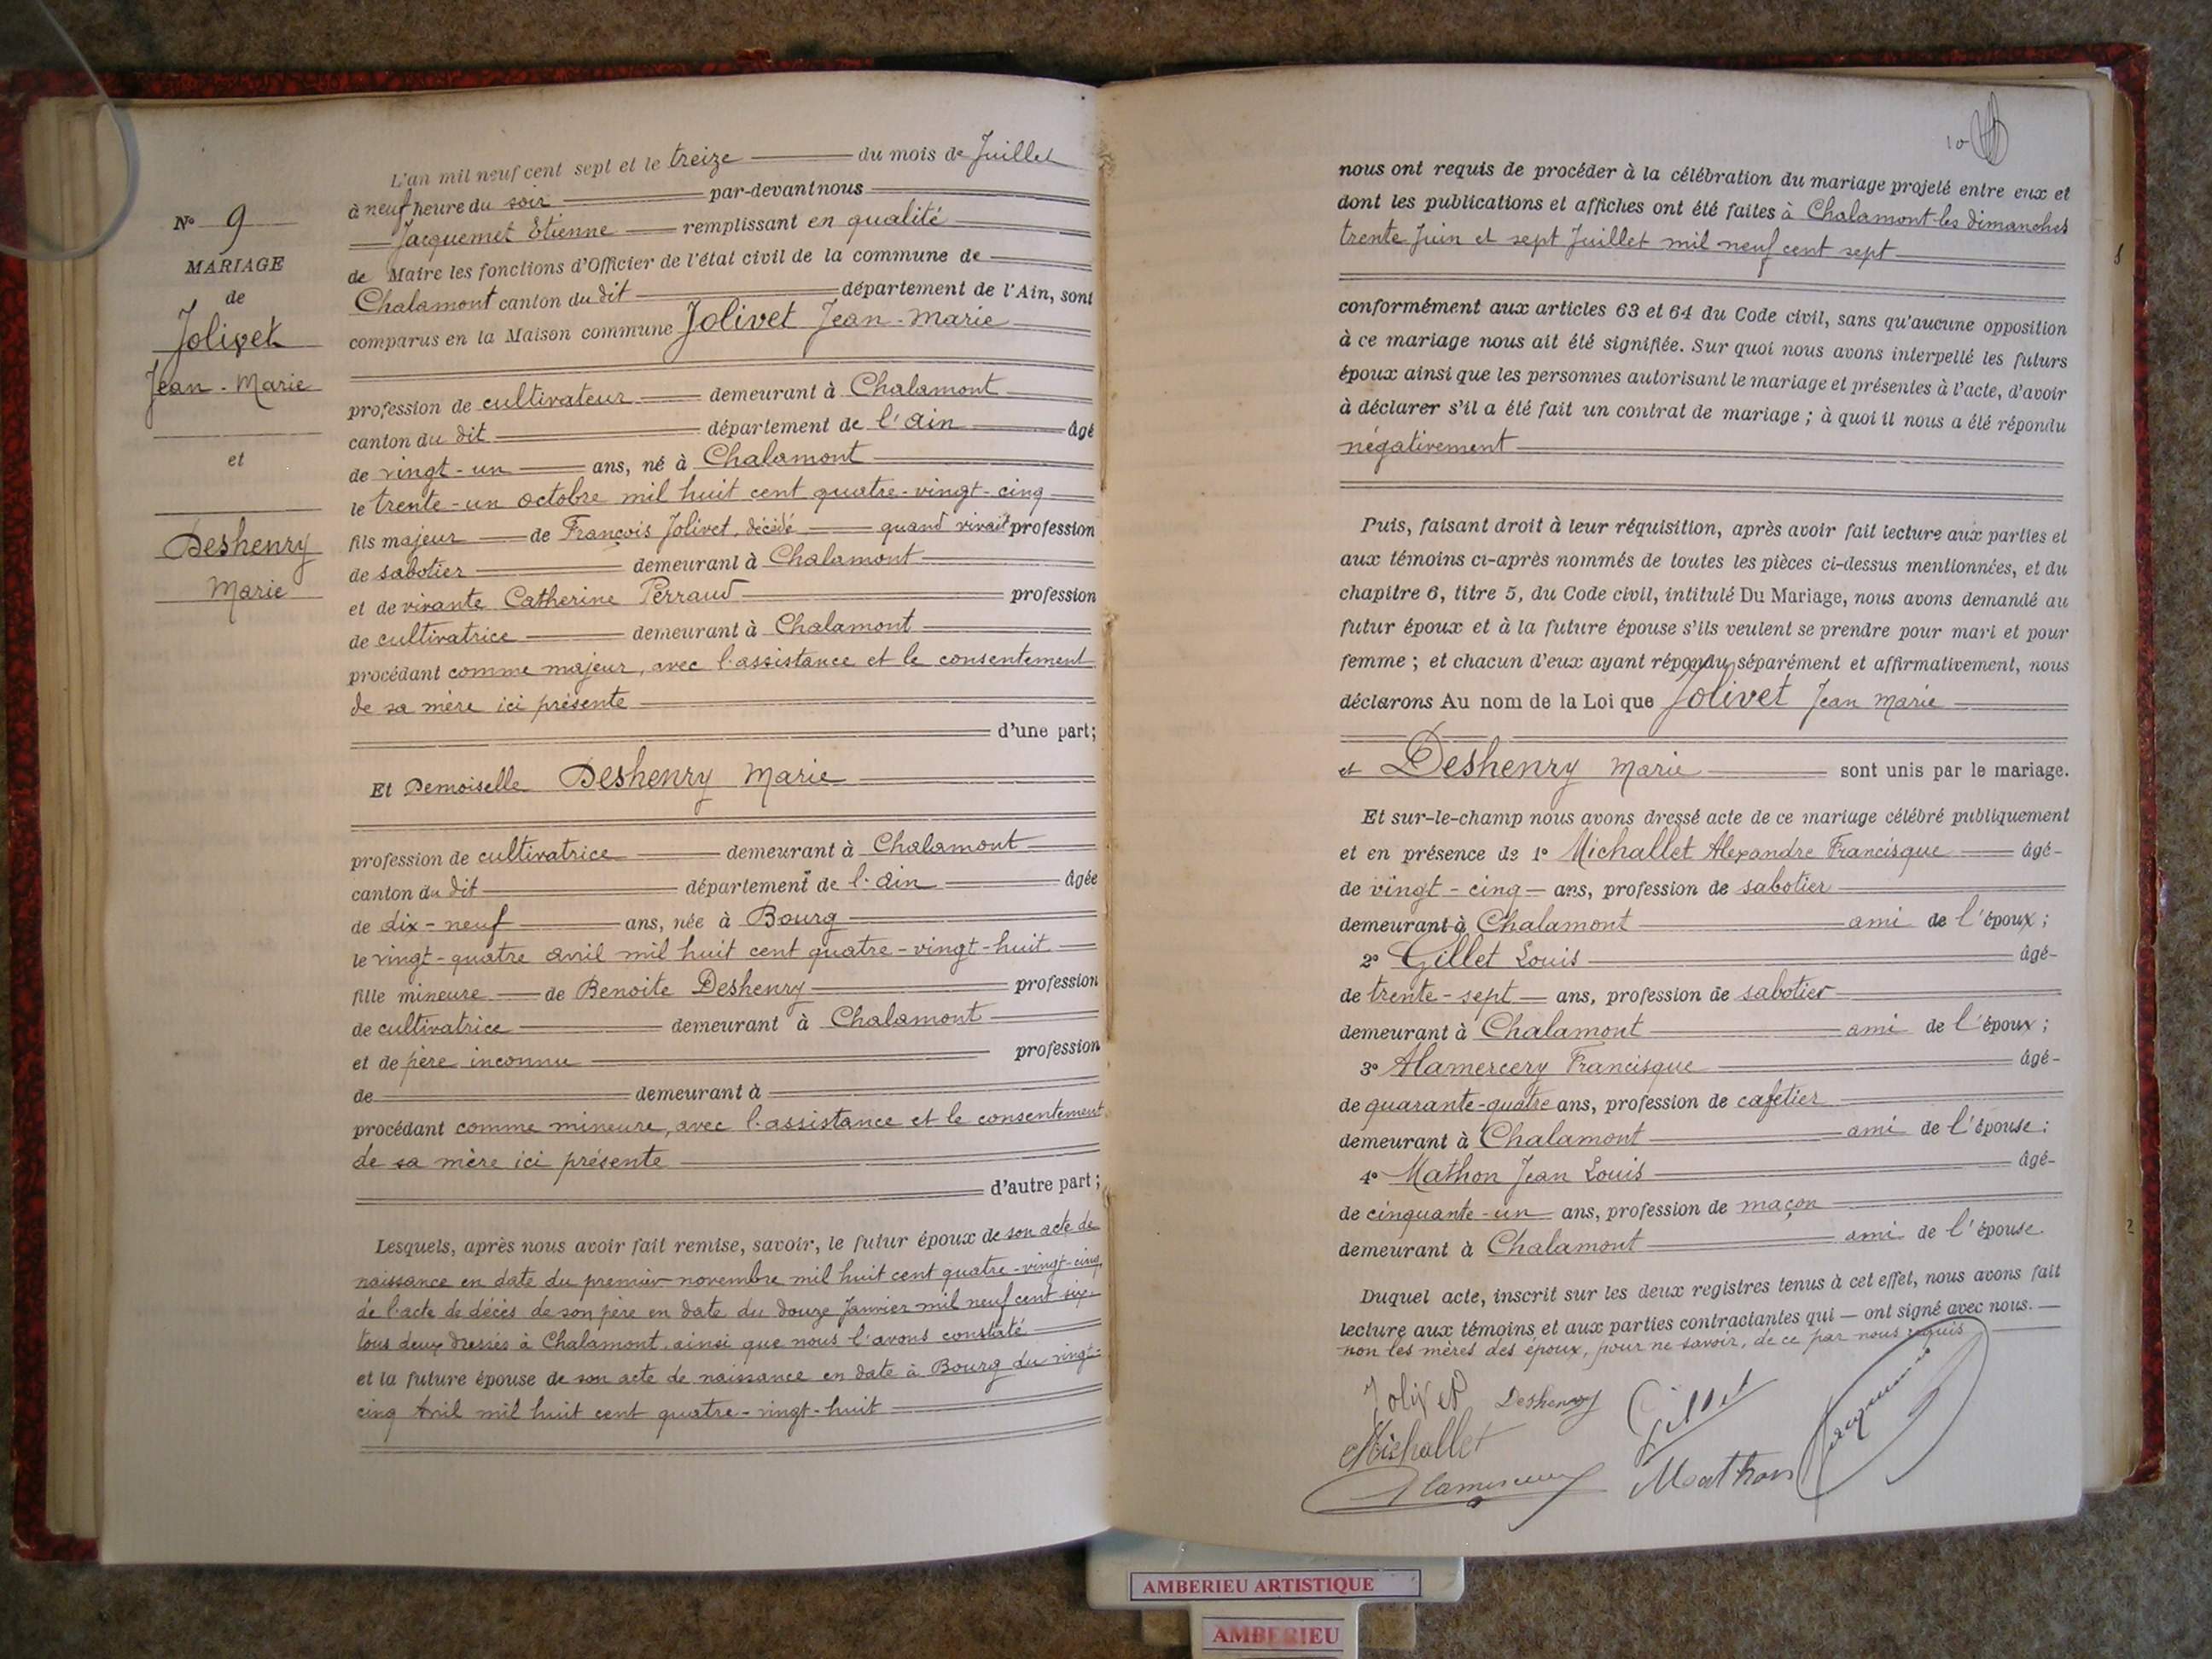 N° 9
MARIAGE
de
Jolivet
Jean-Marie
et
Deshenry
Marie
L'an mil neuf cent sept et le treize du mois de Juillet
à neuf heure du soir par-devant nous
Jacquemet Etienne remplissant en qualité
de Maire les fonctions d'Officier de l'état civil de la commune de
Chalamont canton du dit département de l'Ain, sont
comparus en la Maison commune Jolivet Jean-Marie
profession de cultivateur demeurant à Chalamont
canton du dit département de l'Ain âgé
de vingt-un ans, né à Chalamont
le trente-un octobre mil huit cent quatre-vingt-cinq
fils majeur de François Jolivet, décédé quand vivait profession
de sabotier demeurant à Chalamont
et de vivante Catherine Perraud profession
de cultivatrice demeurant à Chalamont
procédant comme majeur, avec l'assistance et le consentement
de sa mère ici présente
d'une part;
Et Demoiselle Deshenry Marie
profession de cultivatrice demeurant à Chalamont
canton du dit département de l'Ain âgée
de dix-neuf ans, née à Bourg
le vingt-quatre avril mil huit cent quatre-vingt-huit
fille mineure de Benoite Deshenry profession
de cultivatrice demeurant à Chalamont
et de père inconnu profession
de demeurant à
procédant comme mineure, avec l'assistance et le consentement
de sa mère ici présente
d'autre part;
Lesquels, après nous avoir fait remise, savoir, le futur époux de son acte de
naissance en date du premier novembre mil huit cent quatre-vingt-cinq,
de l'acte de décès de son père en date du douze Janvier mil neuf cent six,
tous deux dressés à Chalamont, ainsi que nous l'avons constaté
et la future épouse de son acte de naissance en date à Bourg du vingt-
cinq Avril mil huit cent quatre-vingt-huit
10
nous ont requis de procéder à la célébration du mariage projeté entre eux et
dont les publications et affiches ont été faites à Chalamont les dimanches
trente Juin et sept Juillet mil neuf cent sept
conformément aux articles 63 et 64 du Code civil, sans qu'aucune opposition
à ce mariage nous ait été signifiée. Sur quoi nous avons interpellé les futurs
époux ainsi que les personnes autorisant le mariage et présentes à l'acte, d'avoir
à déclarer s'il a été fait un contrat de mariage; à quoi il nous a été répondu
négativement
Puis, faisant droit à leur réquisition, après avoir fait lecture aux parties et
aux témoins ci-après nommés de toutes les pièces ci-dessus mentionnées, et du
chapitre 6, titre 5, du Code civil, intitulé Du Mariage, nous avons demandé au
futur époux et à la future épouse s'ils veulent se prendre pour mari et pour
femme; et chacun d'eux ayant répondu séparément et affirmativement, nous
déclarons Au nom de la Loi que Jolivet Jean Marie
et Deshenry Marie sont unis par le mariage.
Et sur-le-champ nous avons dressé acte de ce mariage célébré publiquement
et en présence de 1° Michallet Alexandre Francisque âgé
de vingt-cinq ans, profession de sabotier
demeurant à Chalamont ami de l'époux;
2° Gillet Louis âgé
de trente-sept ans, profession de sabotier
demeurant à Chalamont ami de l'époux;
3° Alamercery Francisque âgé
de quarante-quatre ans, profession de cafetier
demeurant à Chalamont ami de l'épouse;
4° Mathon Jean Louis âgé
de cinquante-un ans, profession de maçon
demeurant à Chalamont ami de l'épouse
Duquel acte, inscrit sur les deux registres tenus à cet effet, nous avons fait
lecture aux témoins et aux parties contractantes qui ont signé avec nous.
non les mères des époux, pour ne savoir, de ce par nous requis
Jolivet Deshenry Gillet
Michallet Jacquemet
Alamercery Mathon
AMBERIEU ARTISTIQUE
AMBERIEU